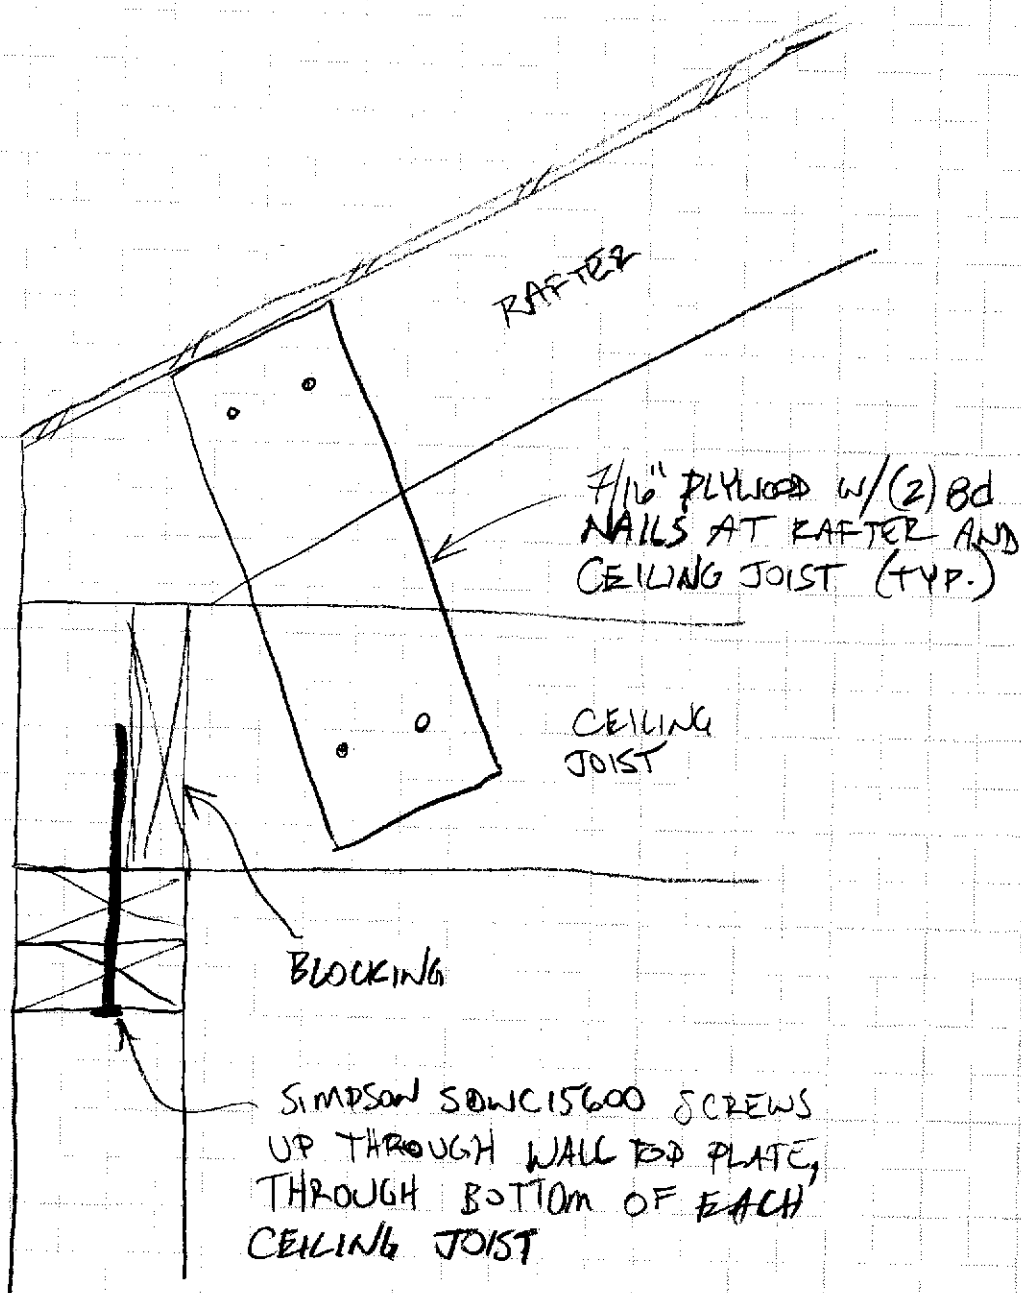 RAFTER
7/16" PLYWOOD W/(2) 8d
NAILS AT RAFTER AND
CEILING JOIST (TYP.)
CEILING
JOIST
BLOCKING
SIMPSON SDWC15600 SCREWS
UP THROUGH WALL TOP PLATE,
THROUGH BOTTOM OF EACH
CEILING JOIST